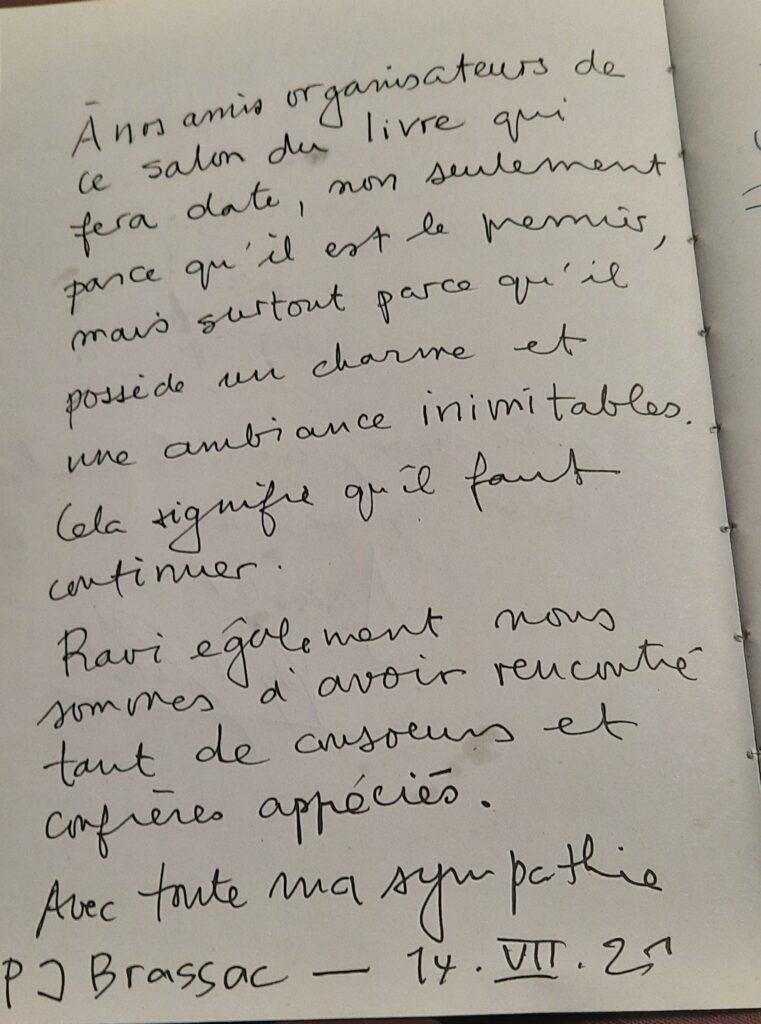 À nos amis organisateurs de
ce salon du livre qui
fera date, non seulement
parce qu'il est le premier,
mais surtout parce qu'il
possède un charme et
une ambiance inimitables.
Cela signifie qu'il faut
continuer.
Ravi également nous
sommes d'avoir rencontré
tant de consoeurs et
confrères appéciés.
Avec toute ma sympathie
PJ Brassac — 14. VII. 25